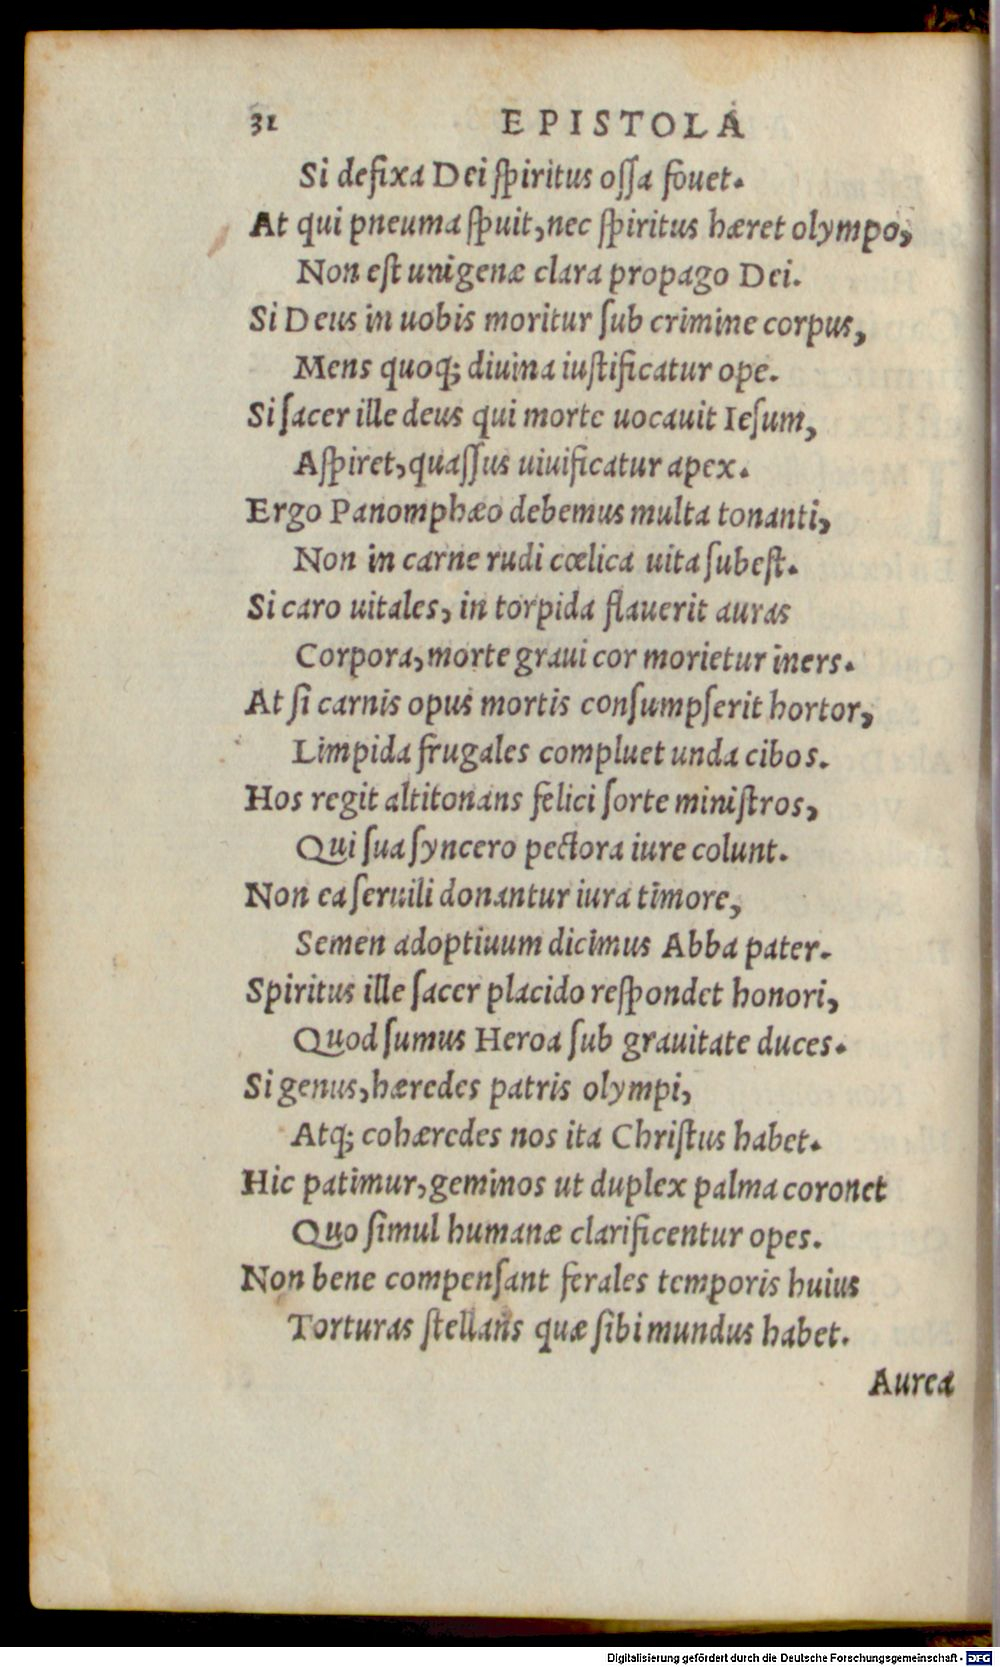 31 EPISTOLA
Si defixa Dei ſpiritus oſſa fouet.
At qui pneuma ſpuit, nec ſpiritus hæret olympo,
Non eſt unigenæ clara propago Dei.
Si Deus in uobis moritur ſub crimine corpus,
Mens quoq; diuina iuſtificatur ope.
Si ſacer ille deus qui morte uocauit Ieſum,
Aſpiret, quaſſus uiuificatur apex.
Ergo Panomphæo debemus multa tonanti,
Non in carne rudi cœlica uita ſubeſt.
Si caro uitales, in torpida flauerit auras
Corpora, morte graui cor morietur iners.
At ſi carnis opus mortis conſumpſerit hortor,
Limpida frugales compluet unda cibos.
Hos regit altitonans felici ſorte miniſtros,
Qui ſua ſyncero pectora iure colunt.
Non ea ſeruili donantur iura timore,
Semen adoptiuum dicimus Abba pater.
Spiritus ille ſacer placido reſpondet honori,
Quod ſumus Heroa ſub grauitate duces.
Si genus, hæredes patris olympi,
Atq; cohæredes nos ita Chriſtus habet.
Hic patimur, geminos ut duplex palma coronet
Quo ſimul humanæ clarificentur opes.
Non bene compenſant ferales temporis huius
Torturas ſtellans quæ ſibi mundus habet.
Aurea
Digitalisierung gefördert durch die Deutsche Forschungsgemeinschaft - DFG